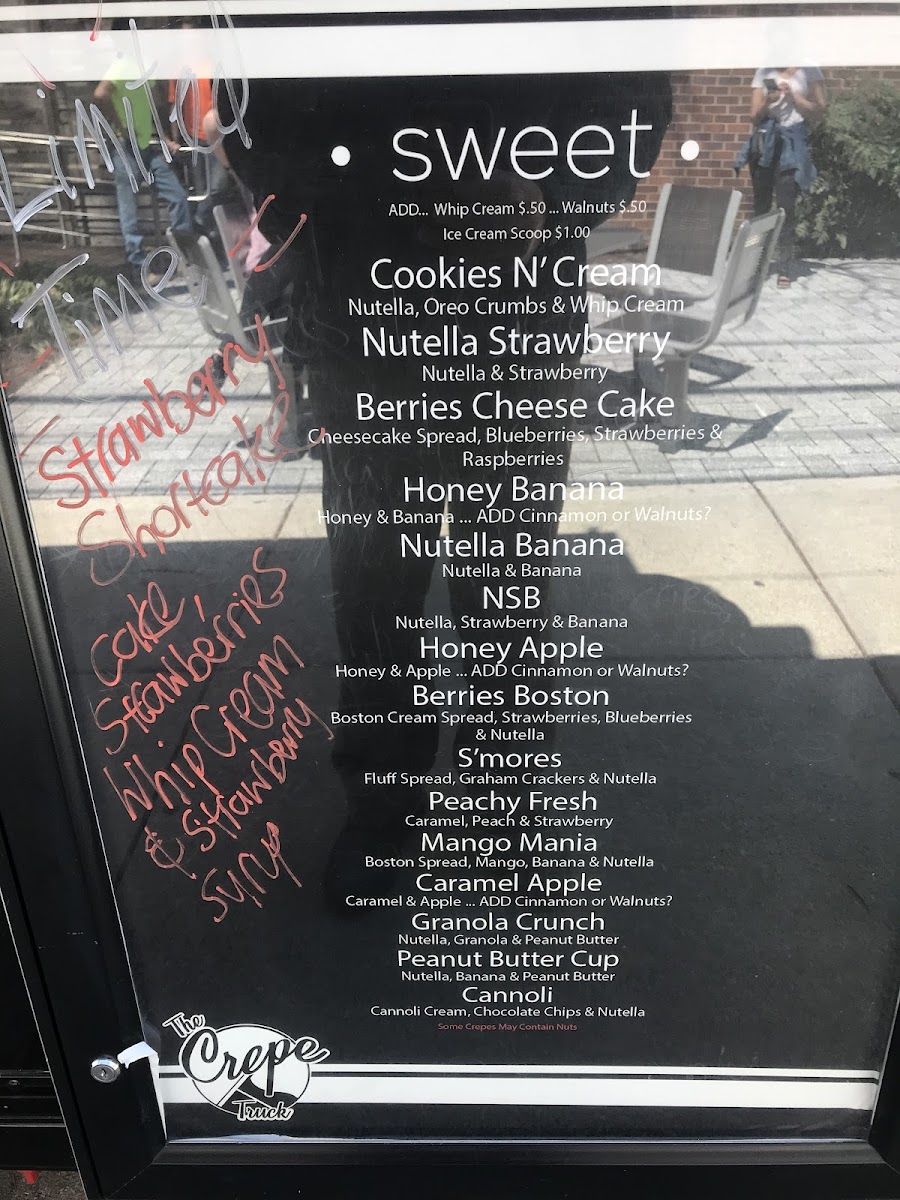 Limited
Time
Strawberry
Shortcake
Cake,
Strawberries
Whip Cream
& Strawberry
Syrup
• sweet •
ADD... Whip Cream $.50 ... Walnuts $.50
Ice Cream Scoop $1.00
Cookies N' Cream
Nutella, Oreo Crumbs & Whip Cream
Nutella Strawberry
Nutella & Strawberry
Berries Cheese Cake
Cheesecake Spread, Blueberries, Strawberries &
Raspberries
Honey Banana
Honey & Banana ... ADD Cinnamon or Walnuts?
Nutella Banana
Nutella & Banana
NSB
Nutella, Strawberry & Banana
Honey Apple
Honey & Apple ... ADD Cinnamon or Walnuts?
Berries Boston
Boston Cream Spread, Strawberries, Blueberries
& Nutella
S'mores
Fluff Spread, Graham Crackers & Nutella
Peachy Fresh
Caramel, Peach & Strawberry
Mango Mania
Boston Spread, Mango, Banana & Nutella
Caramel Apple
Caramel & Apple ... ADD Cinnamon or Walnuts?
Granola Crunch
Nutella, Granola & Peanut Butter
Peanut Butter Cup
Nutella, Banana & Peanut Butter
Cannoli
Cannoli Cream, Chocolate Chips & Nutella
Some Crepes May Contain Nuts
The
Crepe
Truck